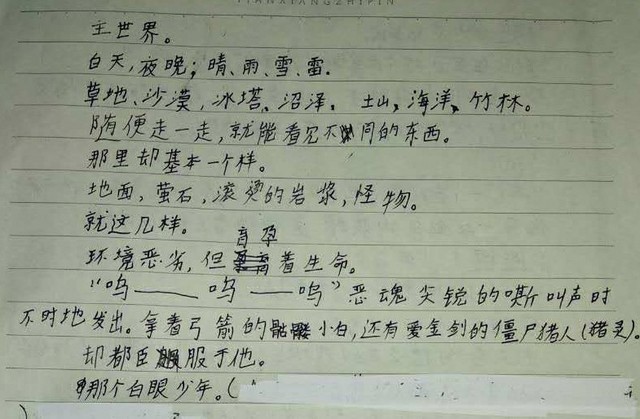 TIANXIANGZHIPIN
主世界。
白天,夜晚;晴、雨、雪、雷.
草地、沙漠,冰塔、沼泽。土山,海洋、竹林。
随便走一走,就能看见不同的东西。
那里却基本一个样。
地面,萤石,滚烫的岩浆,怪物。
就这几样。
环境恶劣,但孕育着生命。
“呜——呜——呜”恶魂尖锐的嘶叫声时
不时地发出。拿着弓箭的骷髅小白,还有爱金剑的僵尸猪人(猪灵)。
却都臣服于他。
那个白眼少年。(
)